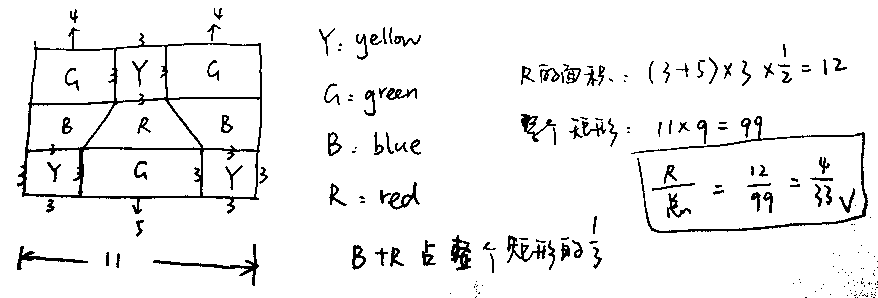 4 3 4
G 3 Y 3 G
3
B R B
3 3
3 Y 3 G 3 Y 3
3 5 3
11
Y: yellow
G: green
B: blue
R: red
B+R 占整个矩形的 1/3
R的面积: (3+5)×3×1/2=12
整个矩形: 11×9=99
R/总 = 12/99 = 4/33 √